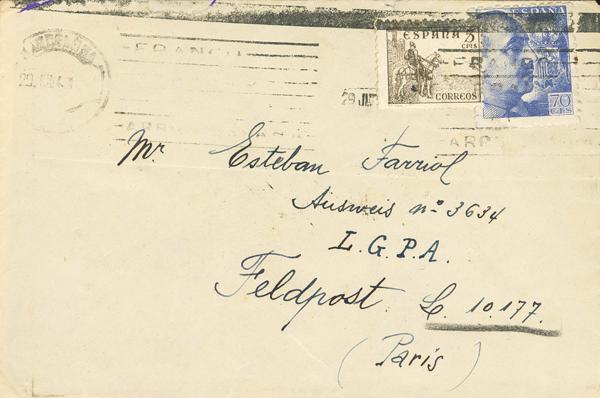 FRANCO
ESPAÑA
5
CTS
CORREOS
ESPAÑA
70
CTS
29 JU
Mr Esteban Farriol
Ausweis nº 3634
L.G.P.A.
Feldpost L. 10.177.
(Paris)